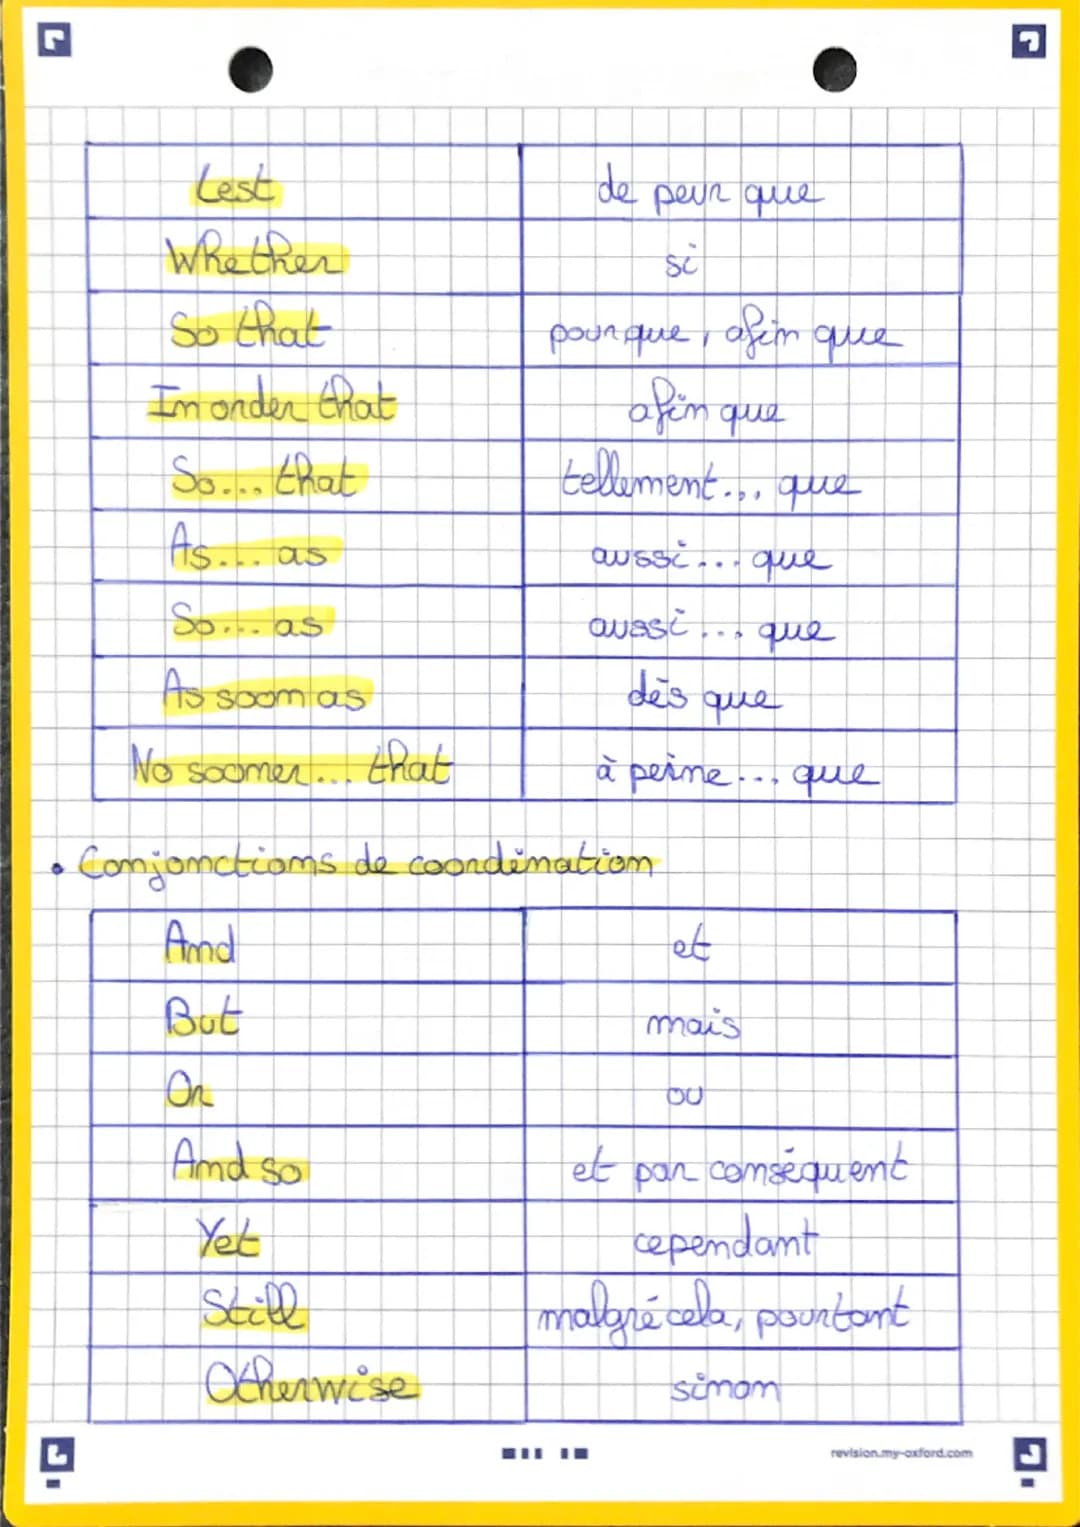 Lest de peur que
Whether si
So that pour que, afin que
In order that afin que
So... that tellement... que
As... as aussi... que
So... as aussi... que
As soon as dès que
No sooner... that à peine... que
• Conjonctions de coordination
And et
But mais
Or ou
And so et par conséquent
Yet cependant
Still malgré cela, pourtant
Otherwise sinon
revision.my-oxford.com